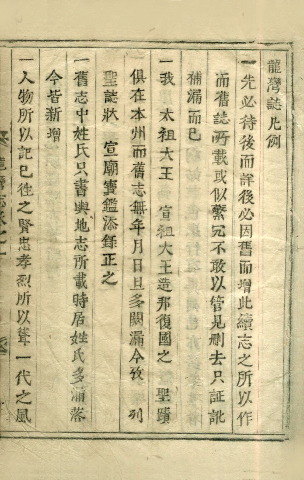 龍灣誌凡例
一先必待後而詳後必因舊而增此續志之所以作
而舊誌所載或似繁冗不敢以管見刪去只証訛
補漏而已
一我 太祖大王 宣祖大王造邦復國之 聖蹟
俱在本州而舊志無年月日且多闕漏今攷 列
聖誌狀 宣廟寶鑑添錄正之
一舊志中姓氏只書輿地志所載時居姓氏多漏落
今皆新增
一人物所以記已徃之賢忠孝烈所以聳一代之風
龍灣誌